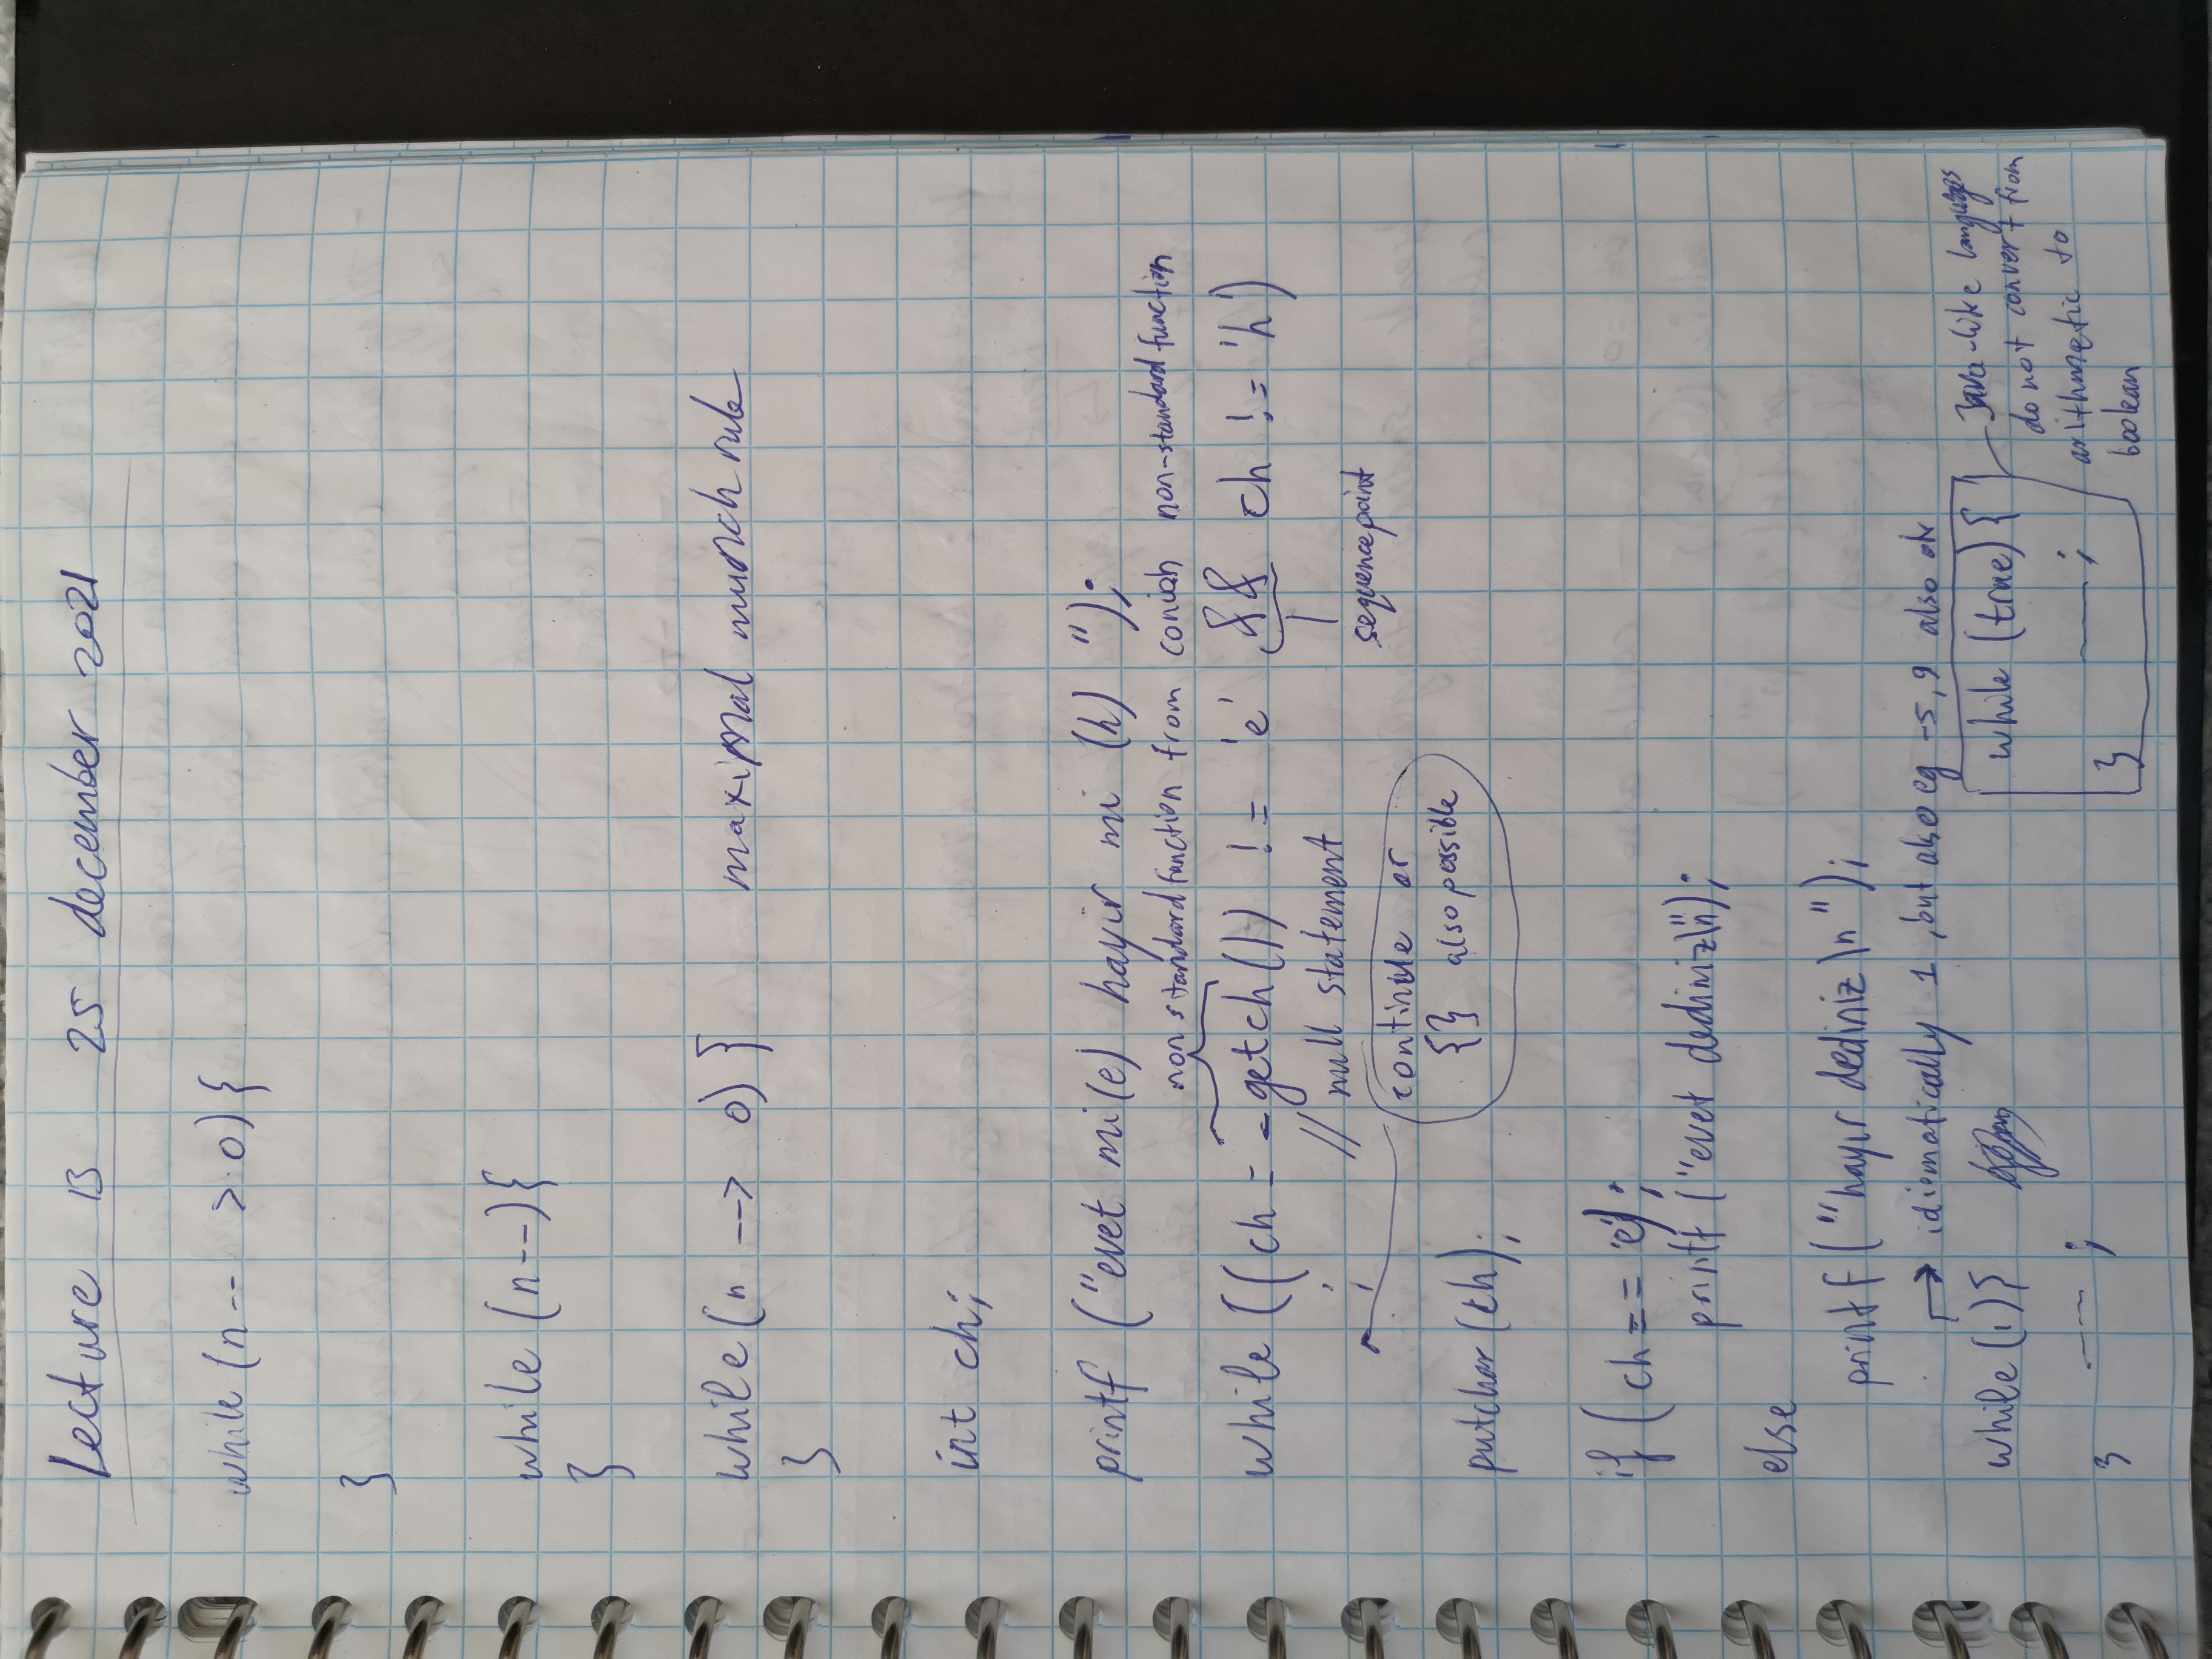 Lecture 13 25 december 2021
while (n-- > 0) {
}
while (n--) {
}
while (n --> 0) { maximal munch rule
}
int ch;
printf ("evet mi(e) hayir mi (h) ");
non standard function from conioh non-standard function
while ((ch = _getch()) != 'e' && ch != 'h')
; // null statement
sequence point
continue or
{} also possible
putchar(ch);
if (ch == 'e');
printf ("evet dediniz\n");
else
printf ("hayır dediniz \n");
→ idiomatically 1, but also eg -5, 9 also ok
while (1) {
___ ;
}
while (true) {
___ ;
}
Java-like languages
do not convert from
arithmetic to
boolean